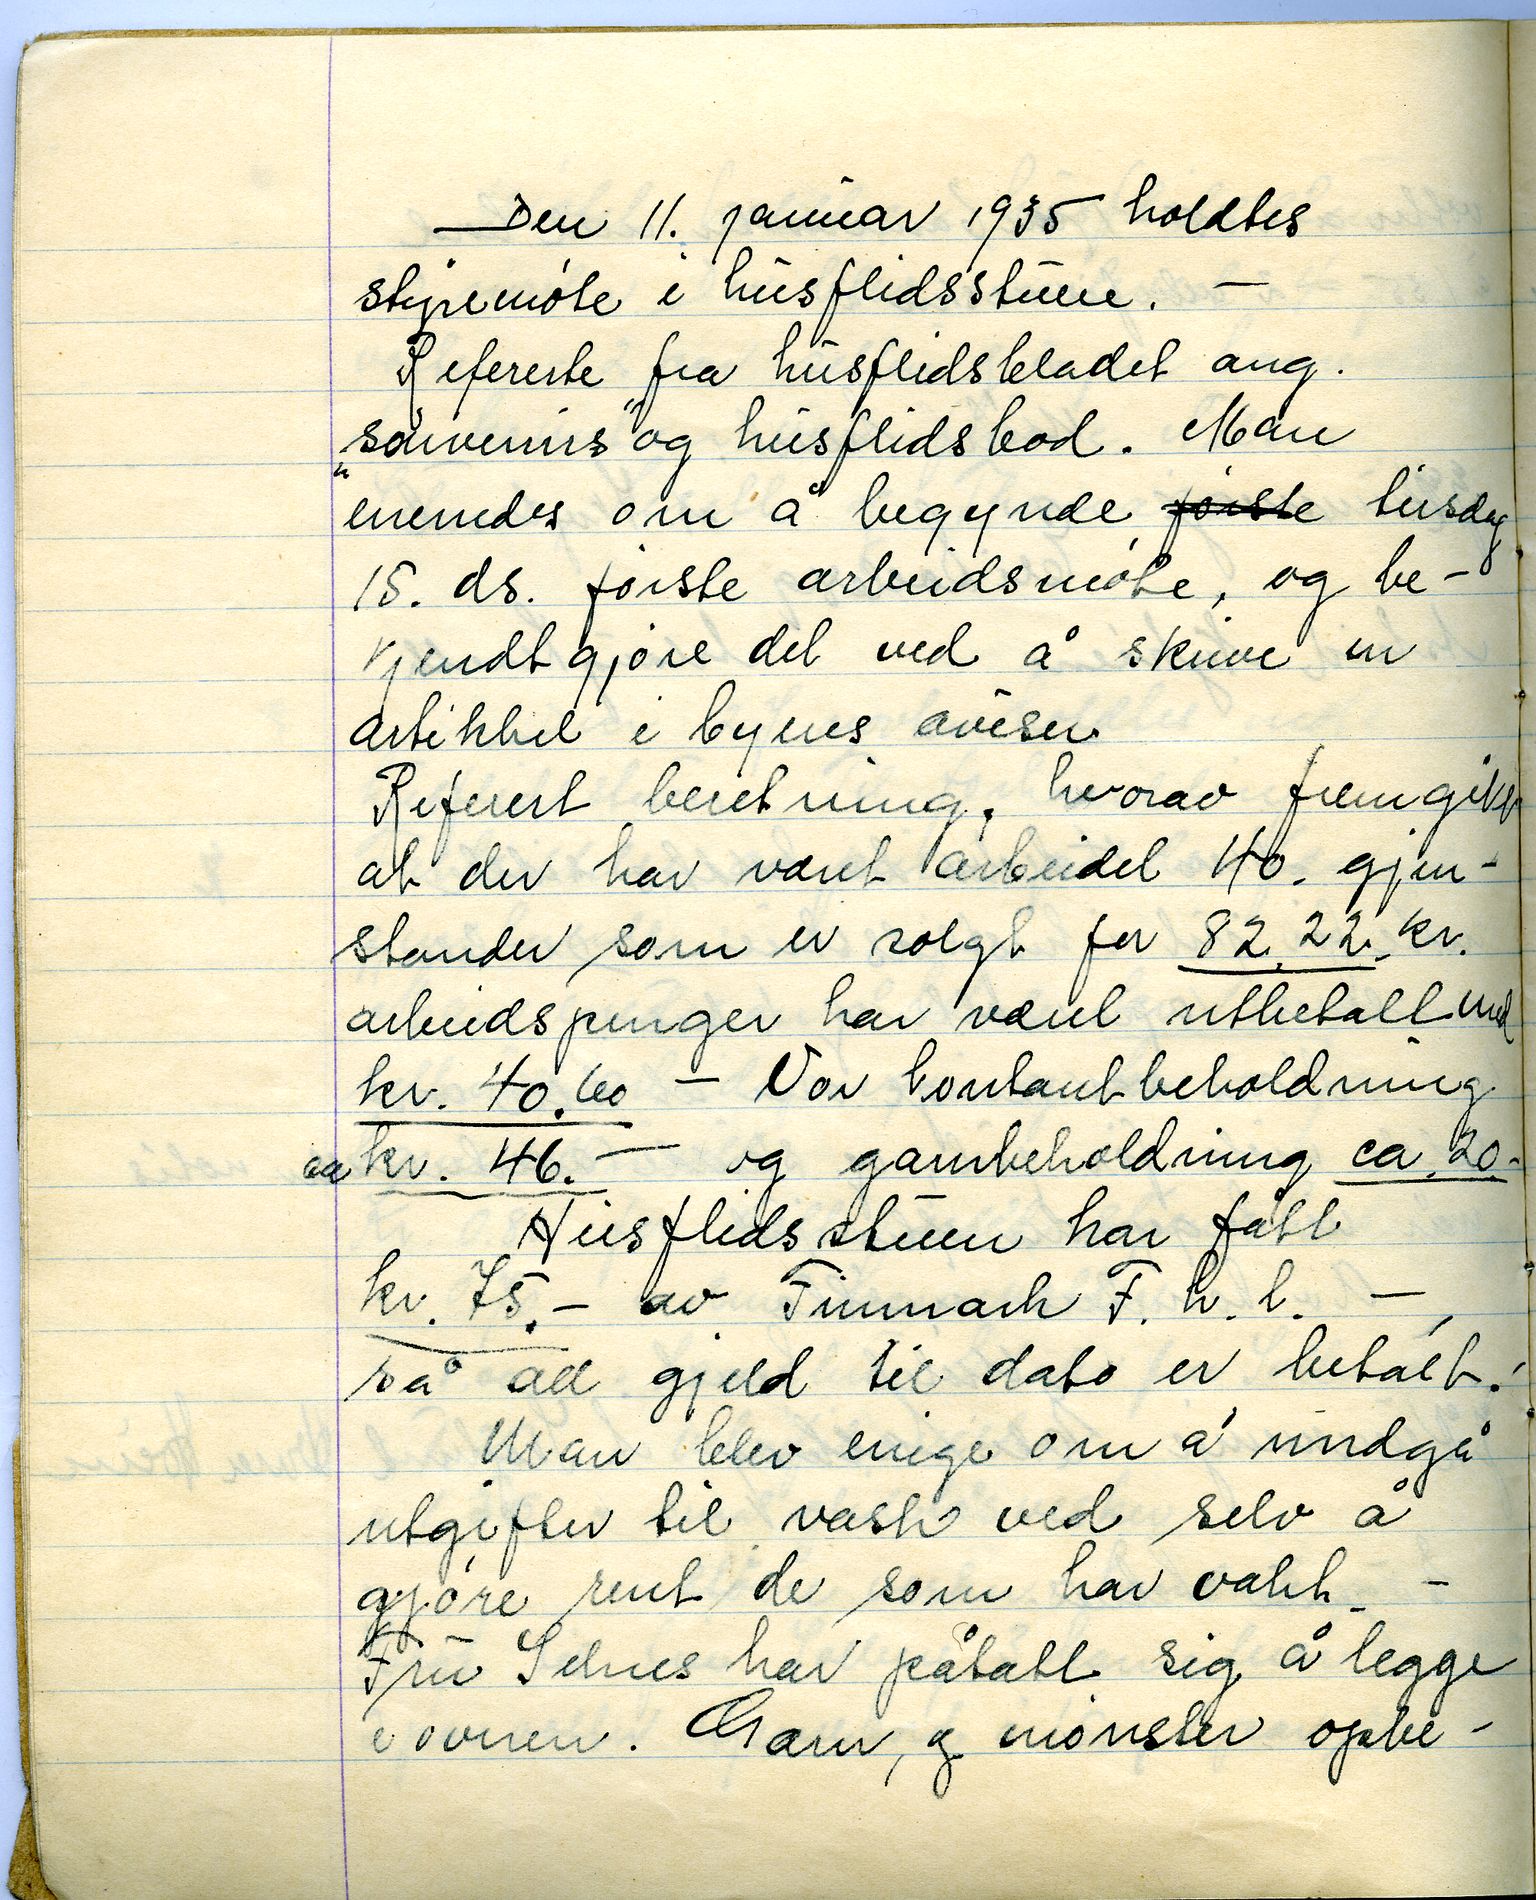 Den 11. januar 1935 holdtes
styremöte i husflidsstuen. —
Refererte fra husflidsbladet ang.
"souvenirs" og husflidsbod. Man
enendes om å begynde förste tirsdag
15. ds. förste arbeidsmöte, og be-
kjendtgjöre det ved å skrive en
artikkel i byens aviser
Referert beretning, hvorav fremgikk
at der har været arbeidet 40. gjen-
stander som er solgt for 82,22. kr.
arbeidspenger har været utbetalt med
kr. 40.60 — Vor kontantbeholdning
ca kr. 46. — og garnbeholdning ca. 20.-
Husflidsstuen har fått
kr. 75.- av Finmark F. h. l. —,
så all gjeld til dato er betalt.
Man blev enige om å undgå
utgifter til vask ved selv å
gjöre rent de som har vakt. -
Fru Selnes har påtatt sig å legge
i ovnen. Garn, og mönster opbe-